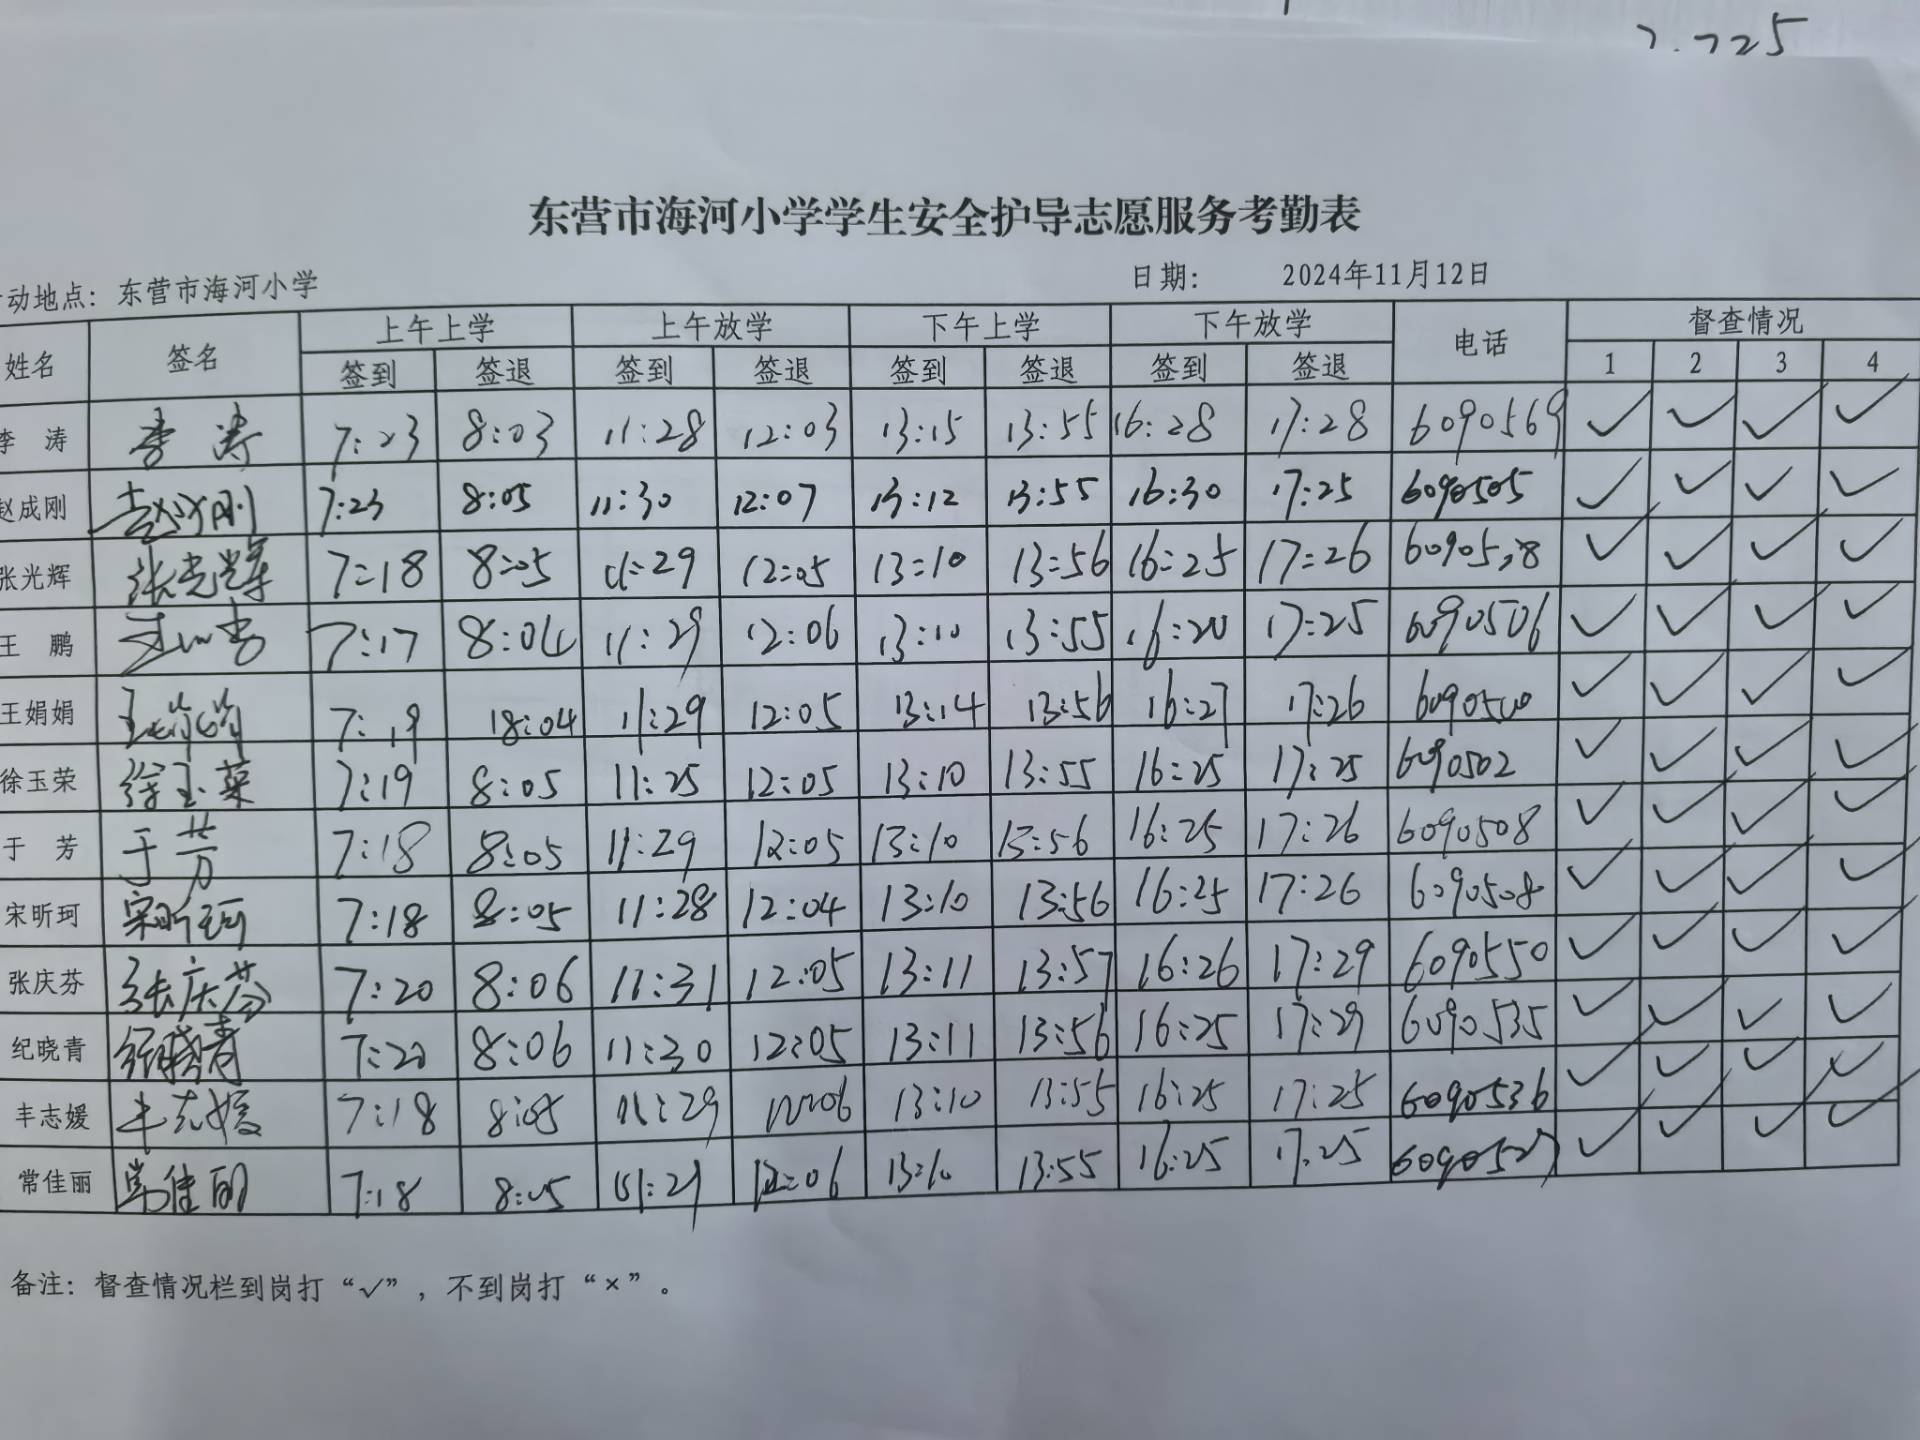 东营市海河小学学生安全护导志愿服务考勤表
动地点：东营市海河小学 日期： 2024年11月12日
姓名 签名 上午上学 上午放学 下午上学 下午放学 电话 督查情况
签到 签退 签到 签退 签到 签退 签到 签退 1 2 3 4
李涛 李涛 7:23 8:03 11:28 12:03 13:15 13:55 16:28 17:28 6090569 ✓ ✓ ✓ ✓
赵成刚 赵成刚 7:23 8:05 11:30 12:07 13:12 13:55 16:30 17:25 6090505 ✓ ✓ ✓ ✓
张光辉 张光辉 7:18 8:05 11:29 12:05 13:10 13:56 16:25 17:26 ✓ ✓ ✓ ✓
王鹏 7:17 8:04 11:29 12:06 13:10 13:55 16:20 17:25 6090506 ✓ ✓ ✓ ✓
王娟娟 王娟娟 7:19 18:04 11:29 12:05 13:14 13:56 16:27 17:26 ✓ ✓ ✓ ✓
徐玉荣 徐玉荣 7:19 8:05 11:25 12:05 13:10 13:55 16:25 17:25 6090502 ✓ ✓ ✓ ✓
于芳 于芳 7:18 8:05 11:29 12:05 13:10 13:56 16:25 17:26 6090508 ✓ ✓ ✓ ✓
宋昕珂 宋昕珂 7:18 8:05 11:28 12:04 13:10 13:56 16:25 17:26 6090508 ✓ ✓ ✓ ✓
张庆芬 张庆芬 7:20 8:06 11:31 12:05 13:11 13:57 16:26 17:29 6090550 ✓ ✓ ✓ ✓
纪晓青 纪晓青 7:20 8:06 11:30 12:05 13:11 13:56 16:25 17:29 6090535 ✓ ✓ ✓ ✓
丰志媛 丰志媛 7:18 8:05 11:29 12:06 13:10 13:55 16:25 17:25 6090536 ✓ ✓ ✓ ✓
常佳丽 常佳丽 7:18 8:05 11:29 12:06 13:10 13:55 16:25 17:25 6090527 ✓ ✓ ✓ ✓
备注：督查情况栏到岗打“✓”，不到岗打“×”。